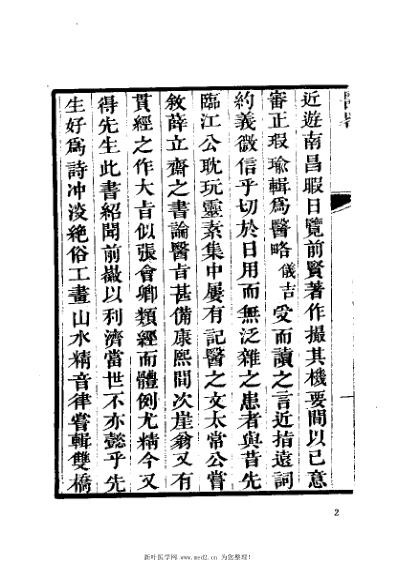 近遊南昌暇日覽前賢著作撮其機要間以已意
審正瑕瑜輯爲醫略儀吉受而讀之言近指遠詞
約義微信乎切於日用而無泛雜之患者與昔先
臨江公耽玩靈素集中屢有記醫之文太常公嘗
敘薛立齋之書論醫旨甚備康熙間次崖翁又有
貫經之作大旨似張會卿類經而體例尤精今又
得先生此書紹聞前媺以利濟當世不亦懿乎先
生好爲詩冲淡絶俗工畫山水精音律嘗輯雙橋
2
新叶医学网 www.med2.cn 为您整理!